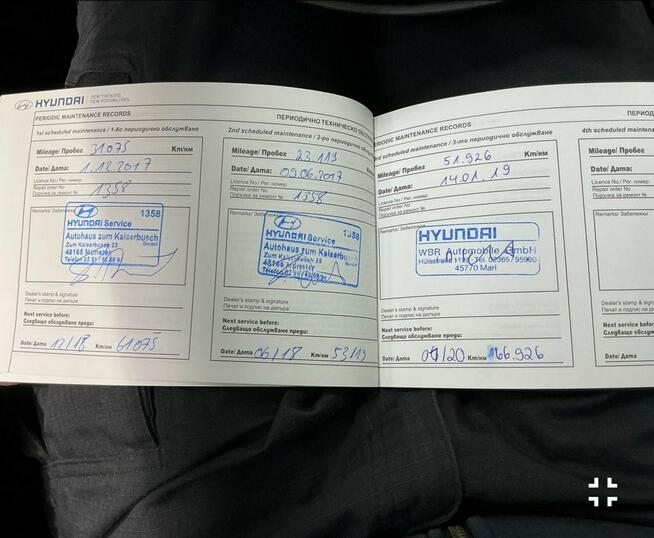 HYUNDAI
NEW THINKING.
NEW POSSIBILITIES.
PERIODIC MAINTENANCE RECORDS
1st scheduled maintenance / 1-во периодично обслужване
Mileage/ Пробег 31075 Km/км
Date/ Дата: 1.12.2017
Licence No./ Рег. номер:
Repair order No
Поръчка за ремонт №: 1358
Remarks/ Забележки
HYUNDAI Service 1358
Autohaus zum Kaiserbusch
GmbH
Zum Kaiserbusch 23
48165 Münster
Dealer's stamp & signature
Печат и подпис на дилъра
Next service before:
Следващо обслужване преди:
Date/ Дата 12/18 Km/км 61075
ПЕРИОДИЧНО ТЕХНИЧЕСКО
2nd scheduled maintenance / 2-ро периодично обслужване
Mileage/ Пробег 23.119 Km/км
Date/ Дата: 09.06.2017
Licence No./ Рег. номер:
Repair order No
Поръчка за ремонт № 1358
Remarks/ Забележки
HYUNDAI Service 1358
Autohaus zum Kaiserbusch
GmbH
Zum Kaiserbusch 23
48165 Münster
Dealer's stamp & signature
Печат и подпис на дилъра
Next service before:
Следващо обслужване преди:
Date/ Дата 06/18 Km/км 53119
MAINTENANCE RECORDS
scheduled maintenance / 3-то периодично обслужване
Mileage/ Пробег 51.926 Km/км
Date/ Дата: 14.01.19
Licence No./ Рег. номер:
Repair order No
Поръчка за ремонт №
Remarks/ Забележки
HYUNDAI
WBR Automobile GmbH
Tel. 02365/
45770 Marl
Dealer's stamp & signature
Печат и подпис на дилъра
Next service before:
Следващо обслужване преди:
Date/ Дата 01/20 Km/км 66.926
4th scheduled
Mileage/
Date/ Дата:
Licence No./
Repair order No
Поръчка за
Remarks/
Dealer's
Печат и
Next service
Следващо
Date/ Дата